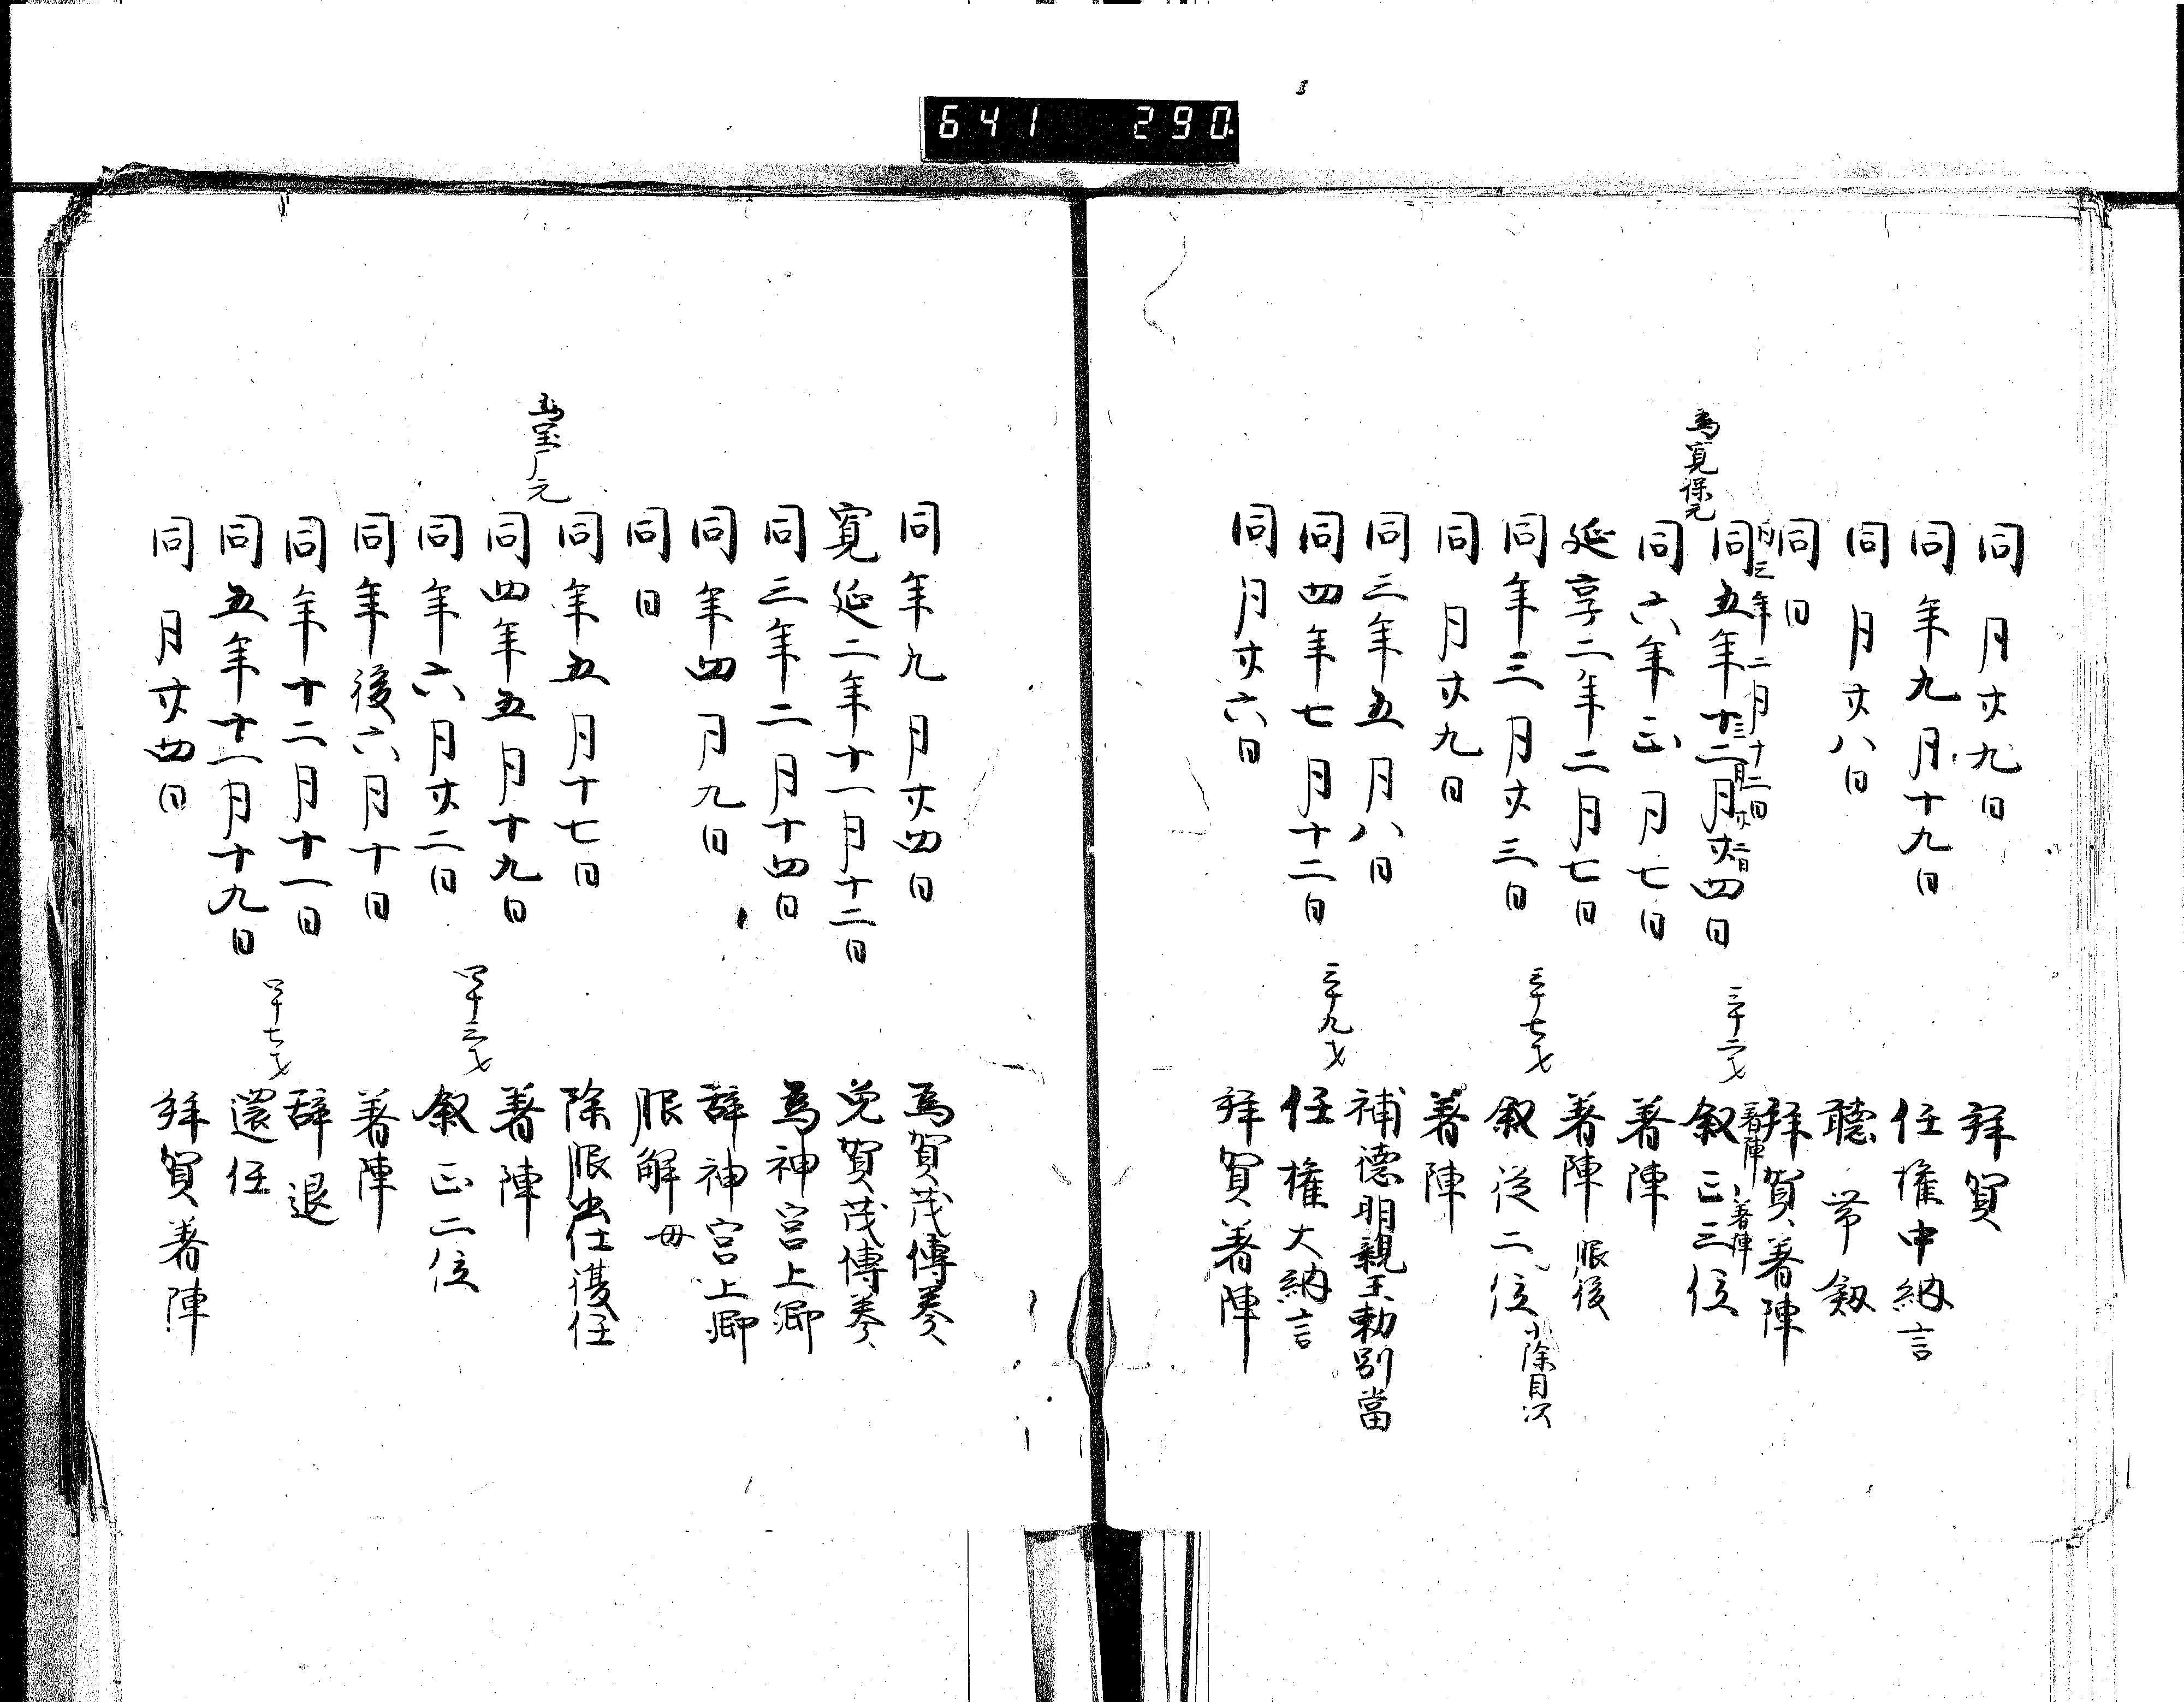 641 290
同月廿九日 拜賀
同年九月十九日 任權中納言
同月廿八日 聴帯劔
同日 拜賀著陣
同三年二月十二日 著陣
著陣
同五年十二月廿四日 三十二才 叙正三位
為寛保元
同六年正月七日 著陣
延享二年二月七日 著陣 服後
同年三月廿三日 三十七才 叙従二位 小除目次
同月廿九日 著陣
同三年五月八日 補德明親王勅別當
同四年七月十二日 三十九才 任權大納言
同月廿六日 拜賀著陣
同年九月廿四日 為賀茂傳奏
寛延二年十一月十二日 免賀茂傳奏
同三年二月十四日 為神宮上卿
同年四月九日 辞神宮上卿
同日 服解 母
同年五月十七日 除服出仕復任
為宝厂元
同四年五月十九日 著陣
同年六月廿二日 四十三才 叙正二位
同年後六月十日 著陣
同年十二月十一日 辞退
同五年十一月十九日 四十七才 還任
同月廿四日 拜賀著陣